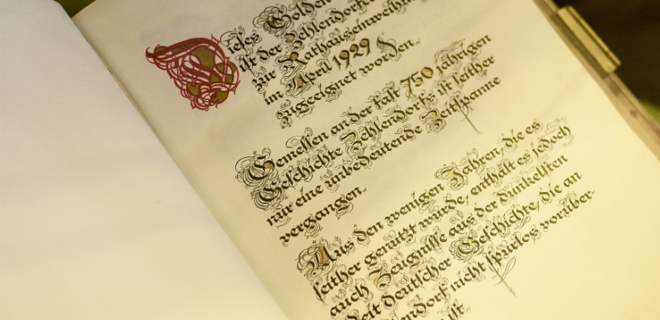 Dieses Goldene
ist der Zehlendorfer
zur Rathauseinweihung
im April 1929
zugeeignet worden.
Gemessen an der fast 750 jährigen
Geschichte Zehlendorfs ist seither
nur eine unbedeutende Zeitspanne
vergangen.
Aus den wenigen Jahren, die es
seither genutzt wurde, enthält es jedoch
auch Zeugnisse aus der dunkelsten
Zeit deutscher Geschichte, die an
Zehlendorf nicht spurlos vorüber-
ist.